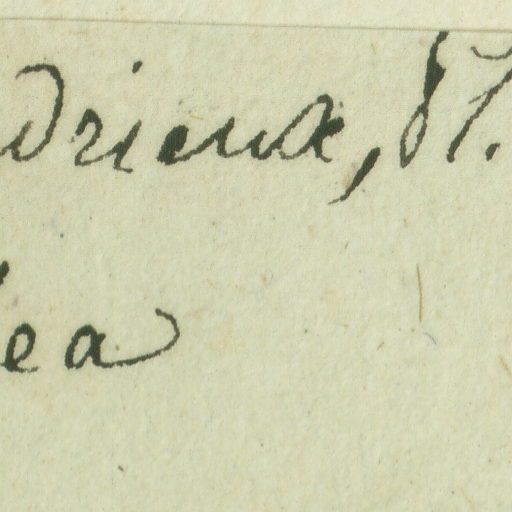 drieux, Pl.
ea